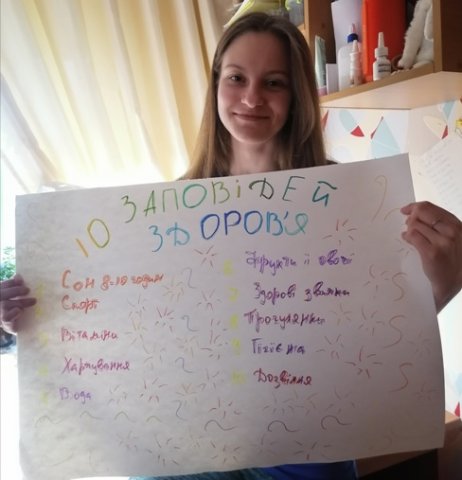 10 ЗАПОВІДЕЙ
ЗДОРОВ'Я
1. Сон 8-10 годин
2. Спорт
3. Вітаміни
4. Харчування
5. Вода
6. Фрукти і овочі
7. Здорові звички
8. Прогулянки
9. Гігієна
10. Дозвілля